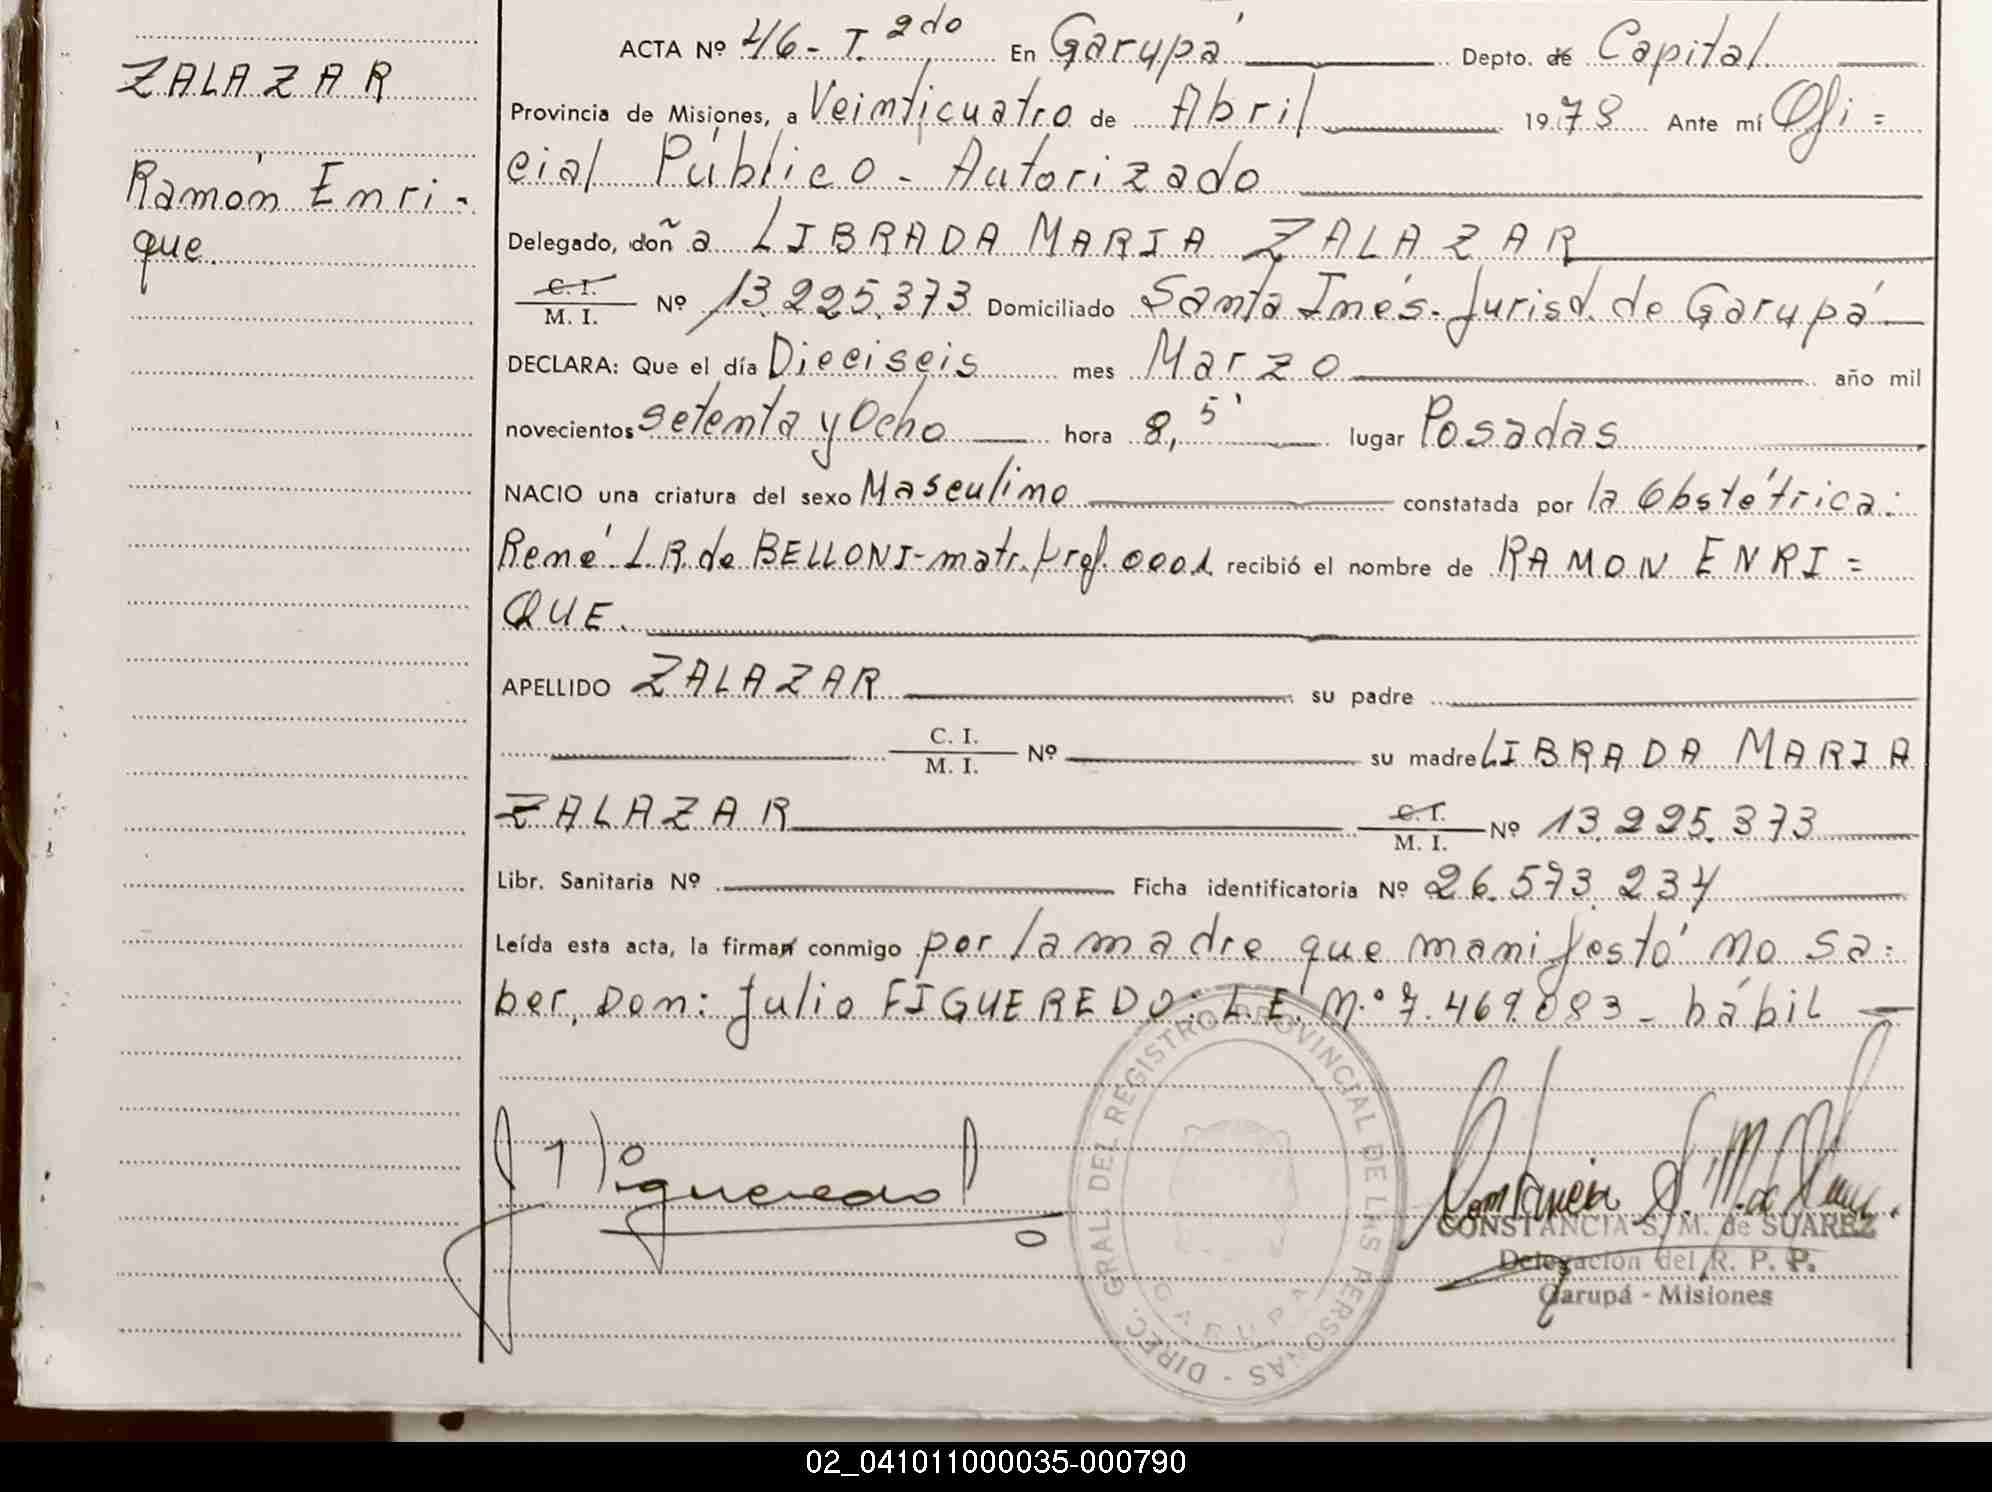 ZALAZAR
Ramón Enri-
que.
ACTA Nº 46- T. 2do En Garupá Depto. de Capital
Provincia de Misiones, a Veinticuatro de Abril 1978 Ante mí Ofi=
cial Público - Autorizado
Delegado, doña LIBRADA MARIA ZALAZAR
C. I.
M. I. Nº 13.225.373 Domiciliado Santa Inés. Jurisd. de Garupá
DECLARA: Que el día Dieciseis mes Marzo año mil
novecientos setenta y Ocho hora 8,5' lugar Posadas
NACIO una criatura del sexo Masculino constatada por la Obstétrica:
René L.R. de BELLONI-matr. Prof. 0001 recibió el nombre de RAMON ENRI=
QUE.
APELLIDO ZALAZAR su padre
C. I.
M. I. Nº su madre LIBRADA MARIA
ZALAZAR C. I.
M. I. Nº 13.225.373
Libr. Sanitaria Nº Ficha identificatoria Nº 26.573.234
Leída esta acta, la firman conmigo por la madre que manifestó no sa=
ber, Don: Julio FIGUEREDO: L.E. Nº 7.469.083 - hábil
DIREC. GRAL. DEL REGISTRO PROVINCIAL DE LAS PERSONAS -
GARUPA
J Figueredo
Constancia S. M. de Suarez
CONSTANCIA S. M. de SUAREZ
Delegación del R. P. P.
Garupá - Misiones
02_041011000035-000790